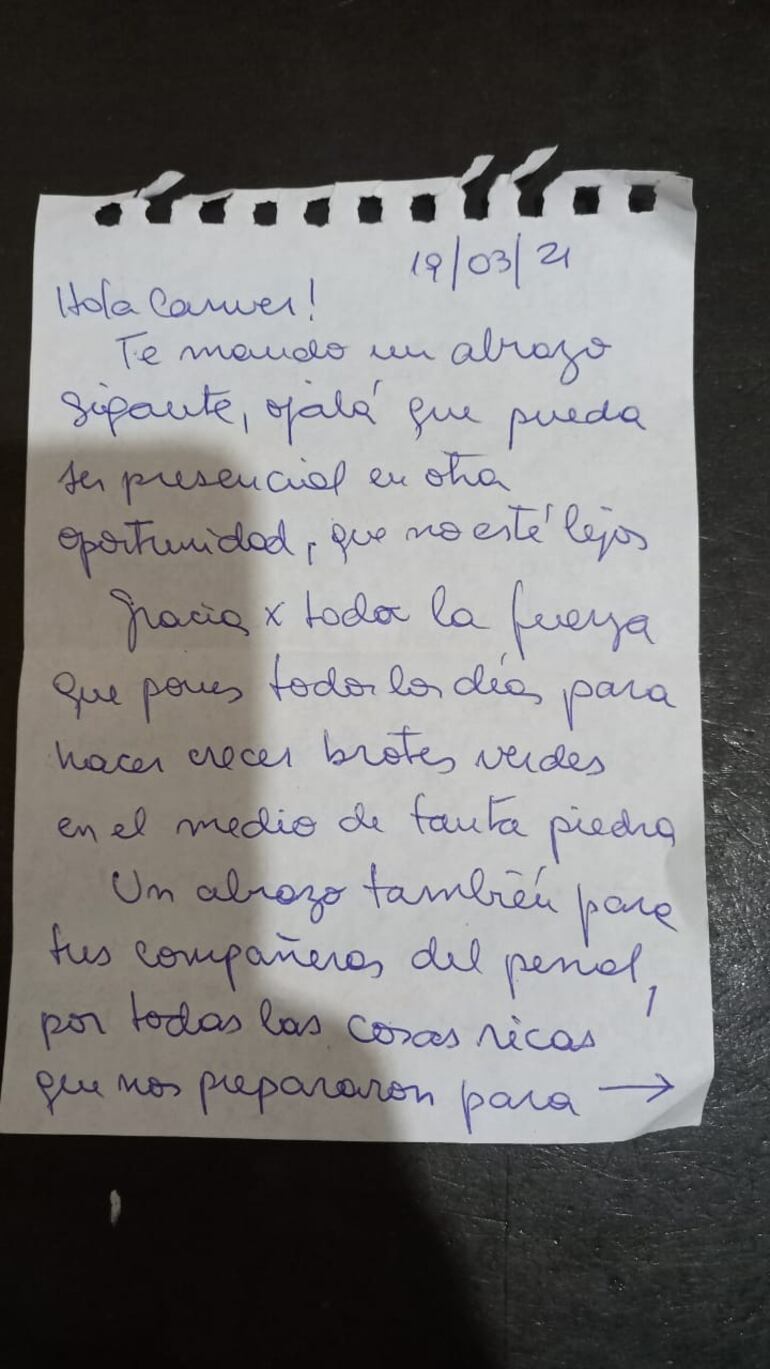 19/03/21
Hola Carmen!
Te mando un abrazo
gigante, ojalá que pueda
ser presencial en otra
oportunidad, que no esté lejos
Gracias x toda la fuerza
que pones todos los días para
hacer crecer brotes verdes
en el medio de tanta piedra
Un abrazo también para
tus compañeras del penal,
por todas las cosas ricas
que nos prepararon para →